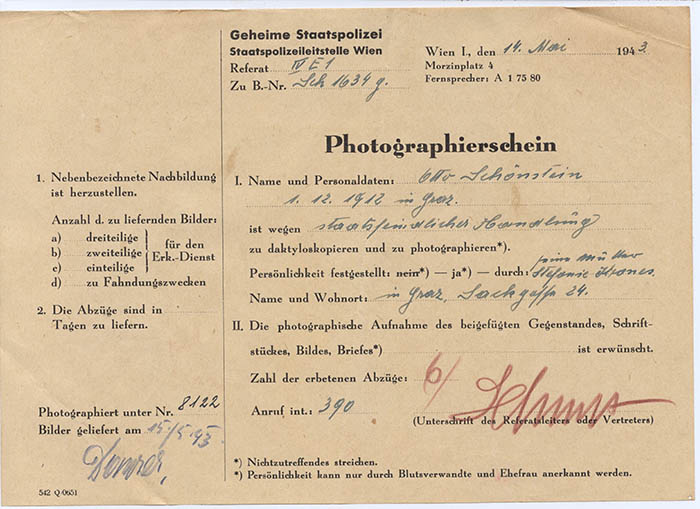 Geheime Staatspolizei
Staatspolizeileitstelle Wien
Referat IV E 1
Zu B.-Nr. Sch 1634 g.
Wien I., den 14. Mai 1943
Morzinplatz 4
Fernsprecher: A 1 75 80
Photographierschein
1. Nebenbezeichnete Nachbildung
ist herzustellen.
Anzahl d. zu liefernden Bilder:
a) dreiteilige
b) zweiteilige
c) einteilige
für den
Erk.-Dienst
d) zu Fahndungszwecken
2. Die Abzüge sind in
Tagen zu liefern.
Photographiert unter Nr. 8122
Bilder geliefert am 15/5 43
I. Name und Personaldaten: Otto Schönstein
1. 12. 1912 in Graz.
ist wegen staatsfeindlicher Handlung
zu daktyloskopieren und zu photographieren*).
Persönlichkeit festgestellt: nein*) — ja*) — durch: seine Mutter
Stefanie
Name und Wohnort: in Graz, Sackgasse 24.
II. Die photographische Aufnahme des beigefügten Gegenstandes, Schrift-
stückes, Bildes, Briefes*) ist erwünscht.
Zahl der erbetenen Abzüge: 6/
Anruf int.: 390
(Unterschrift des Referatsleiters oder Vertreters)
*) Nichtzutreffendes streichen.
*) Persönlichkeit kann nur durch Blutsverwandte und Ehefrau anerkannt werden.
542 Q 0651